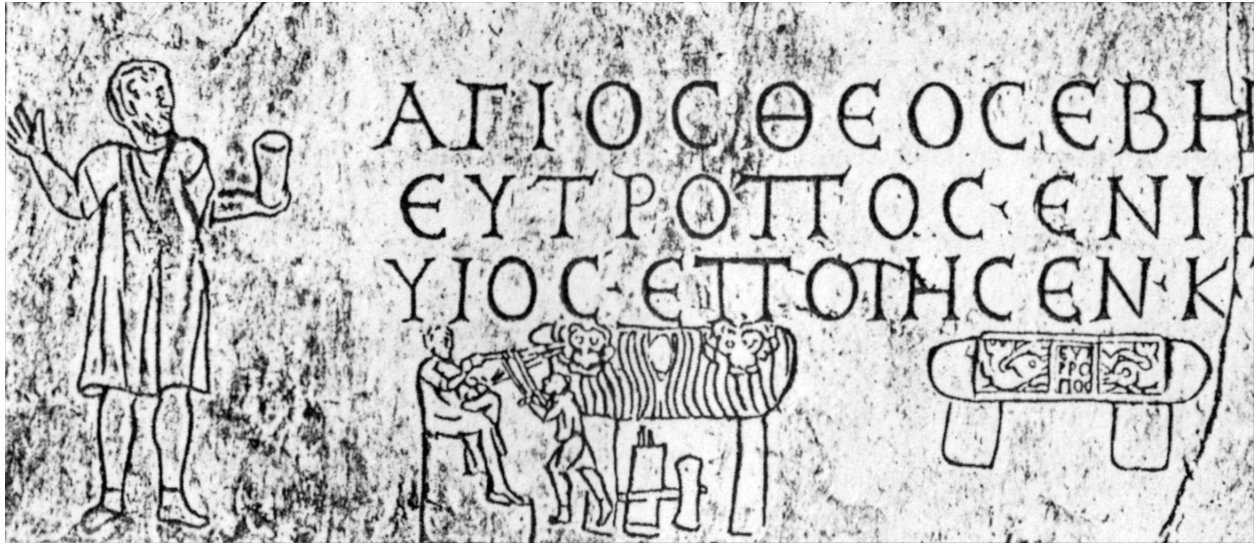 ΑΓΙΟϹ ΘΕΟϹΕΒΗ
ΕΥΤΡΟΠΟϹ · ΕΝ Ι
ΥΙΟϹ · ΕΠΟΙΗϹΕΝ · Κ
ΕΥ
ΤΡΟ
ΠΟϹ